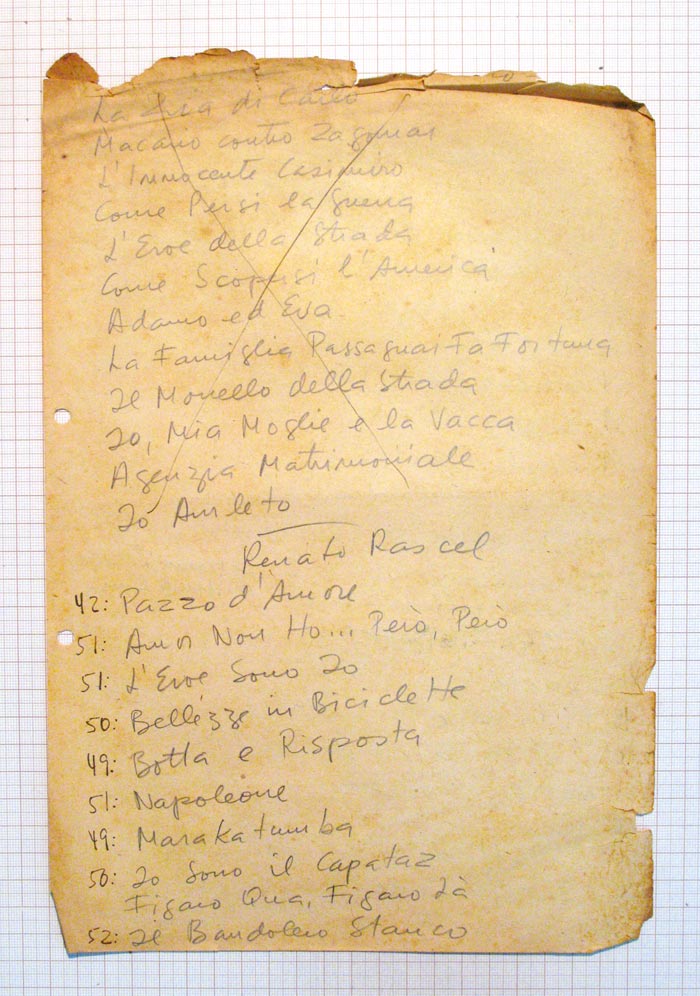 La Zia di Carlo
Macario contro Zagomar
L'Innocente Casimiro
Come Persi la Guerra
L'Eroe della Strada
Come Scopersi l'America
Adamo ed Eva
La Famiglia Passaguai Fa Fortuna
Il Monello della Strada
Io, Mia Moglie e la Vacca
Agenzia Matrimoniale
Io Amleto
Renato Rascel
42: Pazzo d'Amore
51: Amor Non Ho... Però, Però
51: L'Eroe Sono Io
50: Bellezze in Biciclette
49: Botta e Risposta
51: Napoleone
49: Marakatumba
50: Io Sono il Capataz
Figaro Qua, Figaro Là
52: Il Bandolero Stanco